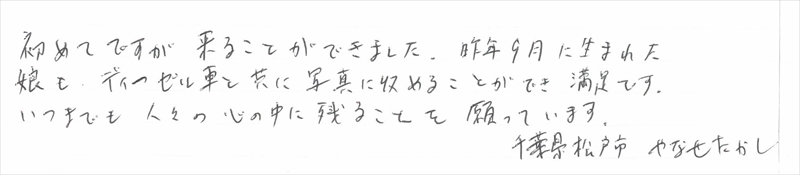 初めてですが 来ることができました。昨年9月に生まれた
娘も ディーゼル車と共に写真に収めることができ 満足です。
いつまでも 人々の心の中に残ることを 願っています。
千葉県松戸市 やなせたかし